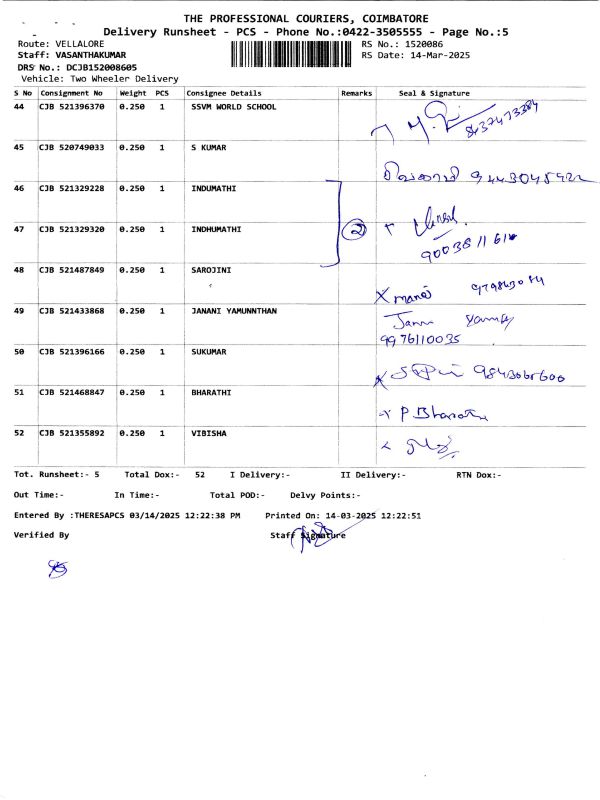 THE PROFESSIONAL COURIERS, COIMBATORE
Delivery Runsheet - PCS - Phone No.:0422-3505555 - Page No.:5
Route: VELLALORE RS No.: 1520086
Staff: VASANTHAKUMAR RS Date: 14-Mar-2025
DRS No.: DCJB152008605
Vehicle: Two Wheeler Delivery
S No Consignment No Weight PCS Consignee Details Remarks Seal & Signature
44 CJB 521396370 0.250 1 SSVM WORLD SCHOOL
45 CJB 520749033 0.250 1 S KUMAR
46 CJB 521329228 0.250 1 INDUMATHI
47 CJB 521329320 0.250 1 INDHUMATHI 2
48 CJB 521487849 0.250 1 SAROJINI
49 CJB 521433868 0.250 1 JANANI YAMUNNTHAN
9976110035
50 CJB 521396166 0.250 1 SUKUMAR
51 CJB 521468847 0.250 1 BHARATHI P Bharathi
52 CJB 521355892 0.250 1 VIBISHA
Tot. Runsheet:- 5 Total Dox:- 52 I Delivery:- II Delivery:- RTN Dox:-
Out Time:- In Time:- Total POD:- Delvy Points:-
Entered By :THERESAPCS 03/14/2025 12:22:38 PM Printed On: 14-03-2025 12:22:51
Verified By Staff Signature